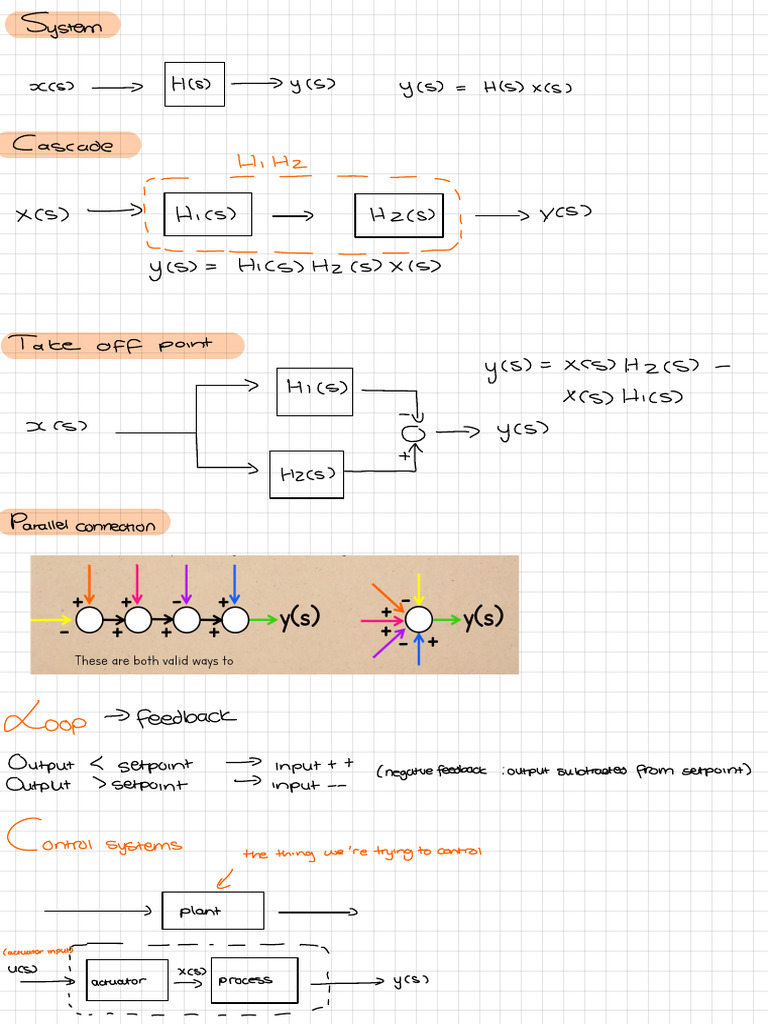 System
x(s) → H(s) → y(s) y(s) = H(s) x(s)
Cascade
H1 H2
x(s) → H1(s) → H2(s) → y(s)
y(s) = H1(s) H2(s) x(s)
Take off point
y(s) = x(s) H2(s) -
x(s) H1(s)
H1(s)
-
x(s) → y(s)
+
H2(s)
Parallel connection
+ + - + -
y(s) + y(s)
- + + + + - +
These are both valid ways to
Loop → feedback
Output < setpoint → input ++
(negative feedback : output subtracted from setpoint)
Output > setpoint → input --
Control systems
the thing we're trying to control
plant
(actuator input)
u(s) x(s)
actuator → process → y(s)